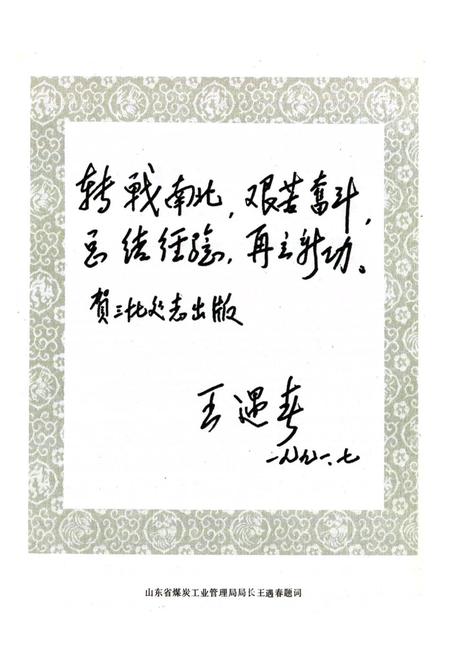 转战南北，艰苦奋斗，
总结经验，再立新功。
贺三十二处志出版
王遇春
一九九一、七
山东省煤炭工业管理局局长王遇春题词